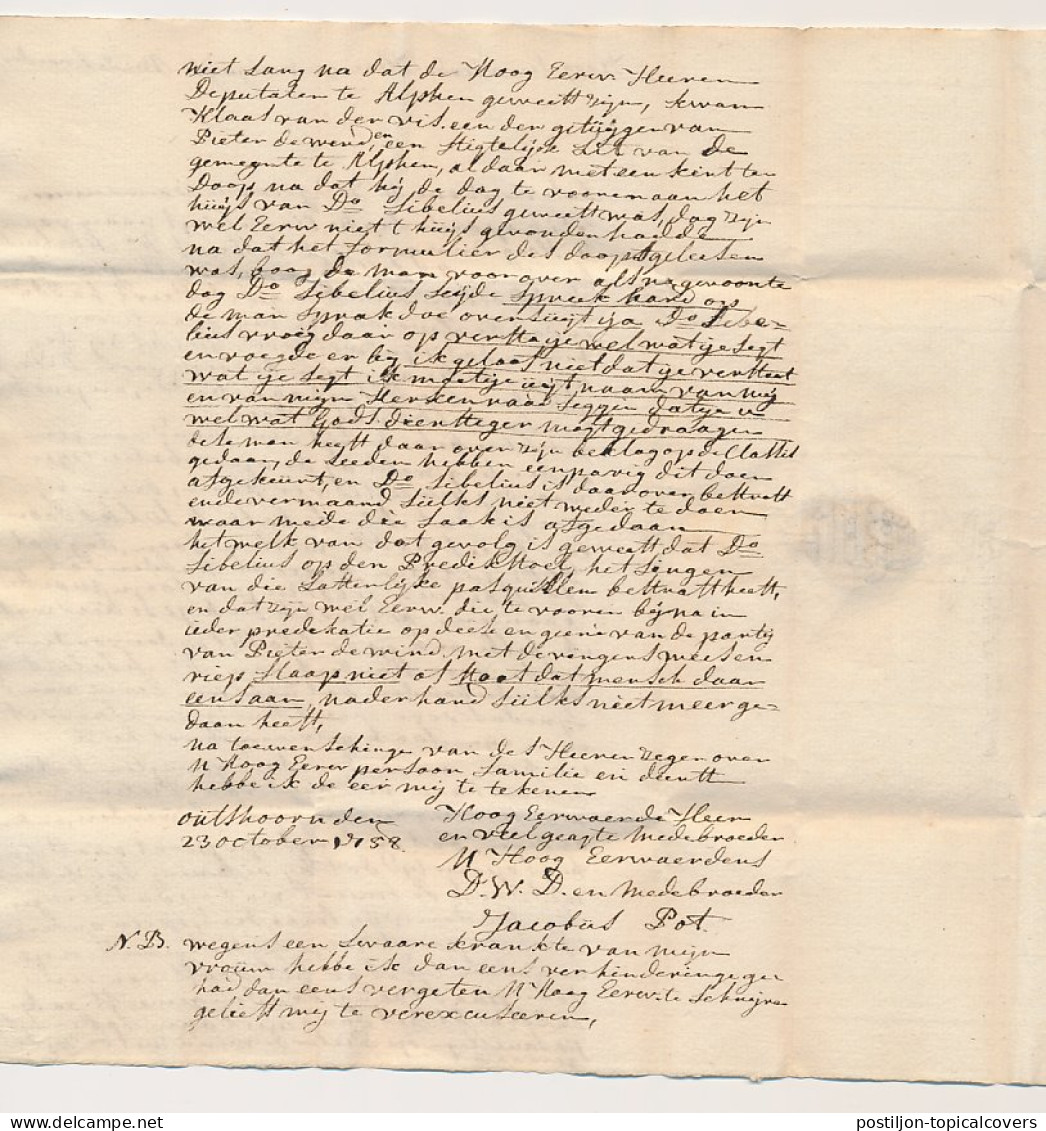 niet lang na dat de Hoog Eerw. Heeren
Deputaten te Alphen geweest zijn, kwam
Klaas van der vis. een der getuijgen van
Pieter de wend, en een stigtelijk Lit van de
gemeente te Alphen, al daar met een kint ten
Doop, na dat hij de dag te vooren aan het
huijs van Do Sibelius geweest was, dog zijn
wel Eerw niet t huijs gevonden hadde
na dat het formulier des doops geleesen
was, boog de man voor over als na gewoonte
dog Do Sibelius seijde spreek hard op
de man sprak doe overluijt ja Do Sibe=
lius vroeg daar op verstaje wel wat je segt
en voegde er bij ik geloof niet dat je verstaat
wat je segt ik moet je uijt naam van mij
en van mijn Kerkenraad seggen dat je u
wel wat Godsdienstiger mogt gedraagen
dese man heeft daar over zijn beklag op de Classis
gedaan, de Leeden hebben eenparig dit doen
afgekeurt, en Do Sibelius is daar over bestraft
ende vermaand sulks niet weder te doen
waar mede die saak is afgedaan
het welk van dat gevolg is geweest dat Do
Sibelius op den Predikstoel, het singen
van die Lasterlijke pasquillen bestraft heeft,
en dat zijn wel Eerw. die te vooren bijna in
ieder predekatie op deese en geene van de partij
van Pieter de wind, met de vingers weesen
riep slaap niet of stoot dat mensch daar
eens aan, naderhand sulks niet meer ge=
daan heeft,
na toewenschinge van des Heeren zegen over
U Hoog Eerw persoon familie en dienst
hebbe ik de eer mij te tekenen
outshoorn den
23 october 1758.
Hoog Eerwaerde Heer
en veel geagte medebroeder
U Hoog Eerwaerdens
D. W. D. en medebroeder
Jacobus Pot.
N. B. wegens een swaare krankte van mijn
vrouw hebbe ik dan eens verhinderinge ge
had dan eens vergeten U Hoog Eerw. te schrijven
gelieft mij te verexcuseeren,
postiljon-topicalcovers